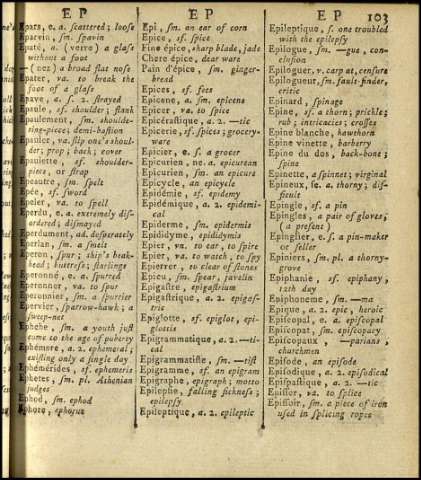 E P
E P
103
Epars, e. a. scattered; loose
Eparvin, sm. spavin
Epaté, a. (verre) a glass
without a foot
— (nez) a broad flat nose
Epater, va. to break the
foot of a glass
Epave, a. s. 2. strayed
Epaule, sf. shoulder; flank
Epaulement, sm. shoulde-
ring-piece; demi-bastion
Epauler, va. slip one's shoul-
der; prop; back; cover
Epaulette, sf. shoulder-
piece, or strap
Epeautre, sm. spelt
Epée, sf. sword
Epeler, va. to spell
Eperdu, e. a. extremely dis-
ordered; dismayed
Eperdument, ad. desperately
Eperlan, sm. a smelt
Eperon, spur; ship's beak-
head; buttress; starlings
Eperonné, e. a. spurred
Eperonner, va. to spur
Eperonnier, sm. a spurrier
Epervier, sparrow-hawk; a
sweep-net
Ephebe, sm. a youth just
come to the age of puberty
Ephémere, a. 2. ephemeral;
existing only a single day
Ephémérides, sf. ephemeris
Ephetes, sm. pl. Athenian
judges
Ephod, sm. ephod
Ephore, ephorus
Epi, sm. an ear of corn
Epice, sf. spice
Fine épice, sharp blade, jade
Chere épice, dear ware
Pain d'épice, sm. ginger-
bread
Epices, sf. fees
Epicene, a. sm. epicene
Epicer, va. to spice
Epicérastique, a. 2. —tic
Epicerie, sf. spices; grocery-
ware
Epicier, e. s. a grocer
Epicurien, ne. a. epicurean
Epicurien, sm. an epicure
Epicycle, an epicycle
Epidémie, sf. epidemy
Epidémique, a. 2. epidemi-
cal
Epiderme, sm. epidermis
Epididyme, epididymis
Epier, va. to ear, to spire
Epier, va. to watch, to spy
Epierrer, to clear of stones
Epieu, sm. spear, javelin
Epigastre, epigastrium
Epigastrique, a. 2. epigas-
tric
Epiglotte, sf. epiglot, epi-
glottis
Epigrammatique, a. 2. —ti-
cal
Epigrammatiste, sm. —tist
Epigramme, sf. an epigram
Epigraphe, epigraph; motto
Epilepsie, falling sickness;
epilepsy
Epileptique, a. 2. epileptic
Epileptique, s. one troubled
with the epilepsy
Epilogue, sm. —gue, con-
clusion
Epiloguer, v. carp at, censure
Epilogueur, sm. fault-finder,
critic
Epinard, spinage
Epine, sf. a thorn; prickle;
rub; intricacies; crosses
Epine blanche, hawthorn
Epine vinette, barberry
Epine du dos, back-bone;
spine
Epinette, a spinnet; virginal
Epineux, se. a. thorny; dif-
ficult
Epingle, sf. a pin
Epingles, a pair of gloves,
(a present)
Epinglier, e. s. a pin-maker
or seller
Epiniers, sm. pl. a thorny-
grove
Epiphanie, sf. epiphany,
12th day
Epiphoneme, sm. —ma
Epique, a. 2. epic, heroic
Episcopal, e. a. episcopal
Episcopat, sm. episcopacy
Episcopaux, —parians,
churchmen
Episode, an episode
Episodique, a. 2. episodical
Epispastique, a. 2. —tic
Episser, va. to splice
Epissoir, sm. a piece of iron
used in splicing ropes